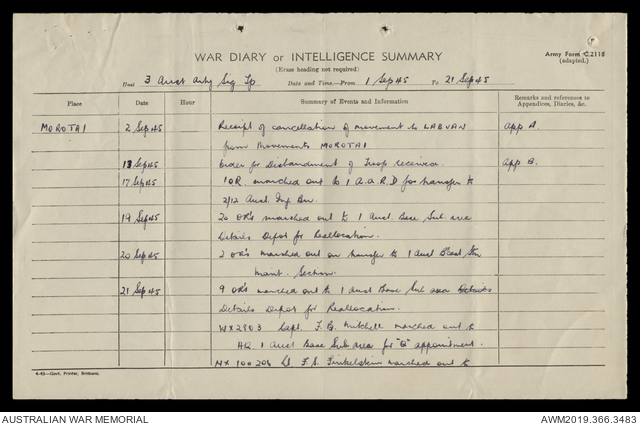 WAR DIARY or INTELLIGENCE SUMMARY
Army Form C.2118
(adapted.)
(Erase heading not required)
Unit 3 Aust Arty Sig Tp Date and Time—From 1 Sep 45 To 21 Sep 45
Place Date Hour Summary of Events and Information Remarks and references to Appendices, Diaries, &c.
MOROTAI 2 Sep 45 Receipt of cancellation of movement to LABUAN App A.
from Movements MOROTAI
13 Sep 45 Order for Disbandment of Troop received App B.
17 Sep 45 1 OR. marched out to 1 A.A.R.D for transfer to
2/12 Aust. Inf Bn.
19 Sep 45 20 OR's marched out to 1 Aust. Base Sub area
Details Depot for Reallocation.
20 Sep 45 2 OR's marched out on transfer to 1 Aust
Maint. Section.
21 Sep 45 9 OR's marched out to 1 Aust Base Sub area
Details Depot for Reallocation.
WX2803 Capt. F.B. Mitchell marched out to
HQ. 1 Aust Base Sub Area for "Q" appointment.
NX 100206 Lt. F.S. Finkelstein marched out to
4-43—Govt. Printer, Brisbane.
AUSTRALIAN WAR MEMORIAL
AWM2019.366.3483